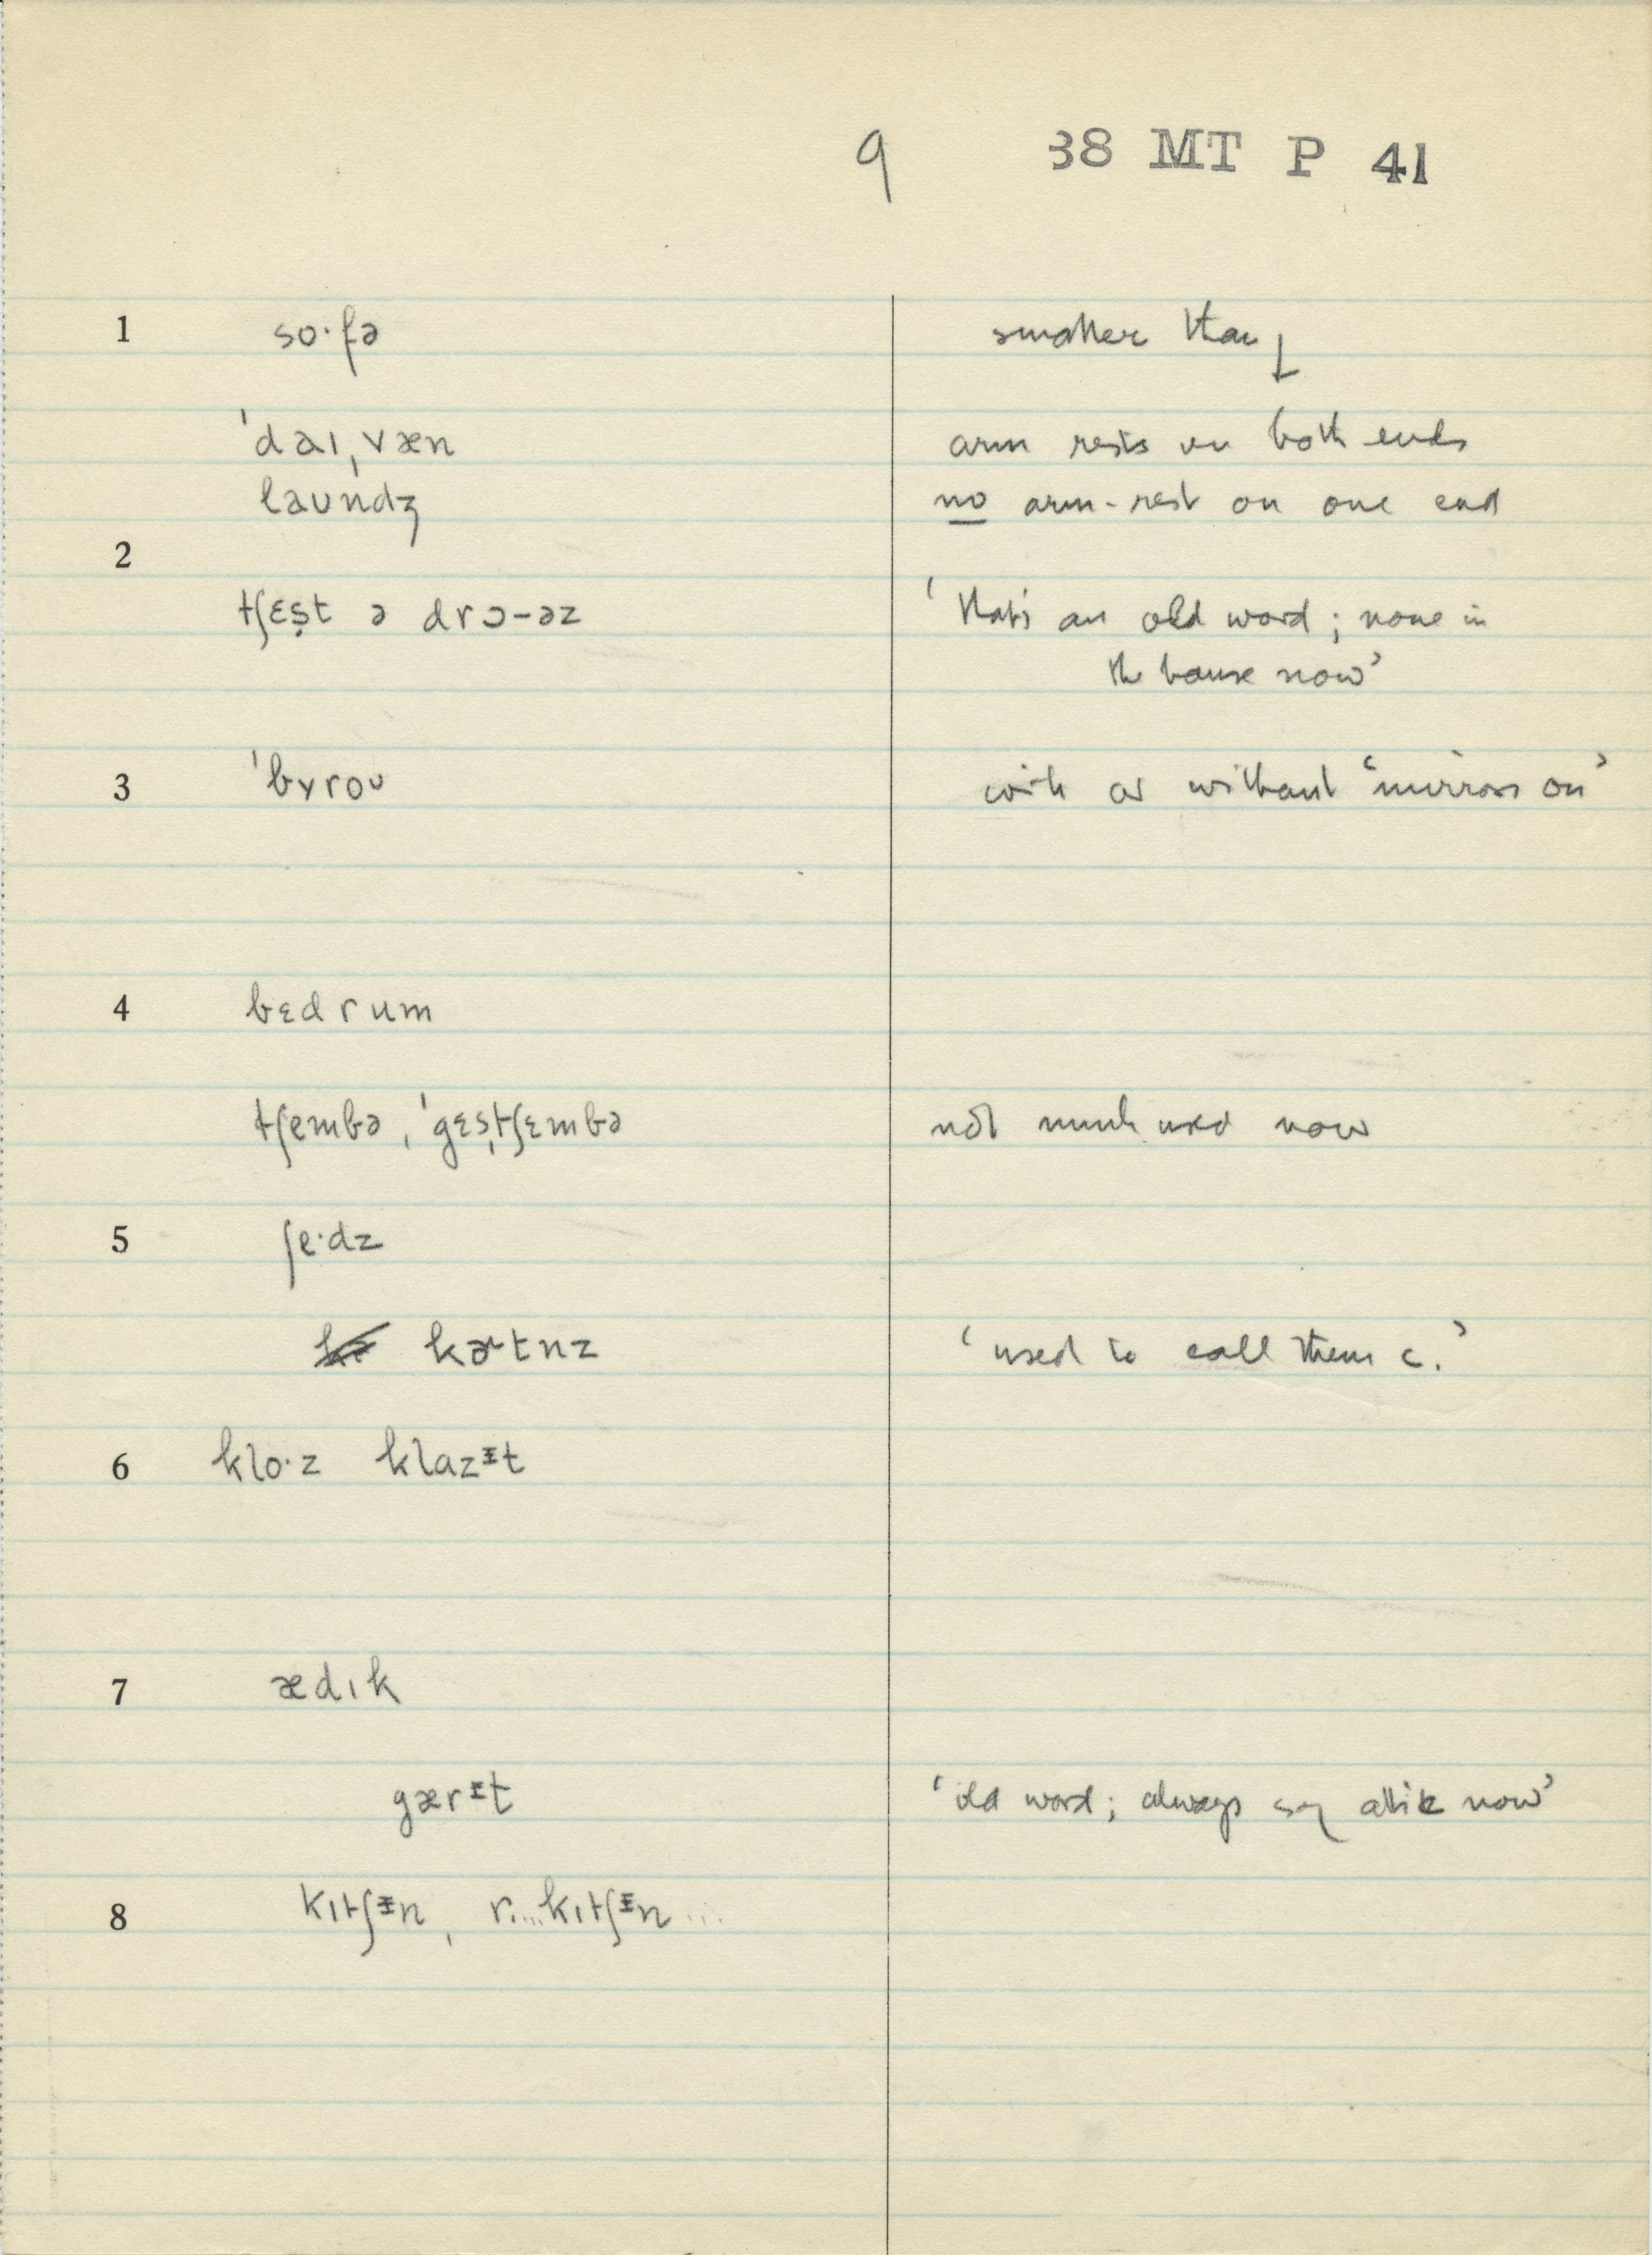 9 38 MT P 41
1 so·fə smaller than ↓
ˈdaɪˌvæn arm rests on both ends
laʊndʒ no arm-rest on one end
2
tʃɛs̩t ə drɔ-əz 'that's an old word; none in
the house now'
3 ˈbʏroʊ with or without 'mirrors on'
4 bɛdrum
tʃembə, ˈgɛsˌtʃɛmbə not much used now
5 ʃe·dz
kɚtnz 'used to call them c.'
6 klo·z klazᵻt
7 ædɪk
gærᵻt 'old word; always say attic now'
8 kɪtʃᵻn, r....kɪtʃᵻn...